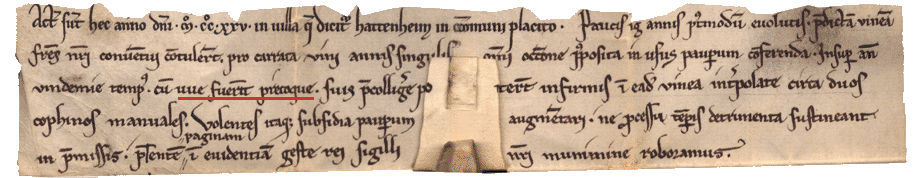 Act͛ sūt hec anno dn̄i .M̊.CC̊.XXV. in uilla q̄ dicit͛ hattenheim in cōmuni placito . Paucis ig̃ annis pt̄modū euolutis. p̄dictā uineā
fr̄es nr̄i cōuētui ꝯtuler̄t. pro carrata uini annis singulis om̄i occ̄one p̄posita in usus pauperum ꝯferenda. Insup̄ an̄
uindemie temp᷒. cū uue fuerīt p̄coque. suis p̄collig̃e po ter̄t infirmis ī ead̄ uinea int̄polate circa duos
cophinos manuales. Volentes itaq; subsidia pauperum augm̄etari. ne ꝓcessu tp̄is detrimenta sustineant
paginam
in p̄missis. p̄sentē ī euidentiā geste rei sigilli nr̄i munimine roboramus.